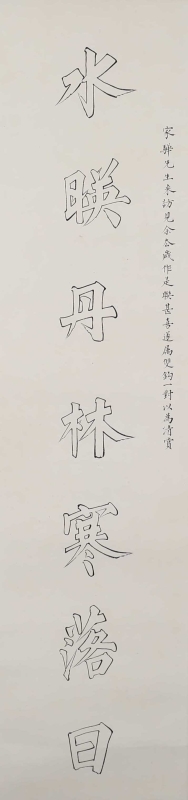 家驊先生來訪見余今歲作是聯甚喜遂屬雙鉤一對以為清賞
水暎丹林寒落日